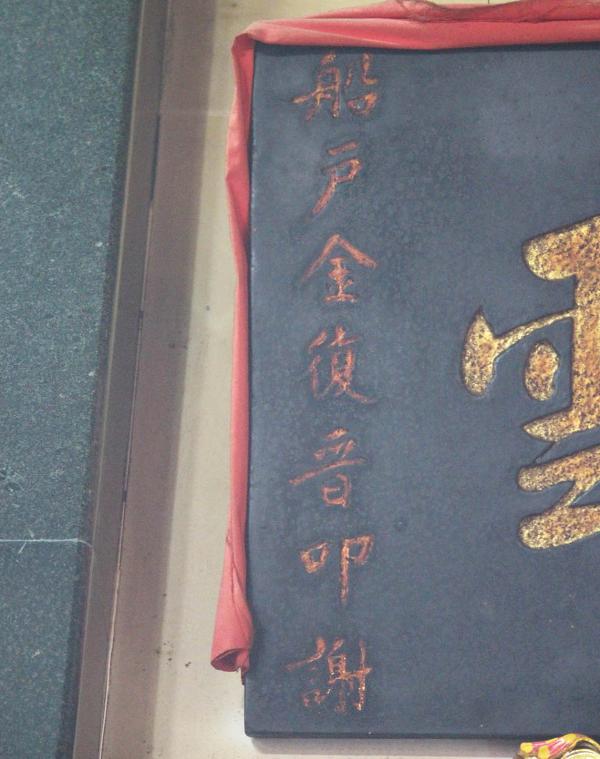 船戶金復音叩謝